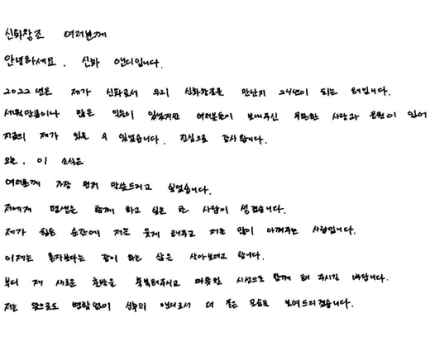 신화창조 여러분께
안녕하세요. 신화 앤디입니다.
2022년은 제가 신화로서 우리 신화창조를 만난지 24년이 되는 해입니다.
세월만큼이나 많은 일들이 있었지만 여러분들이 보내주신 무한한 사랑과 응원이 있어
지금의 제가 있을 수 있었습니다. 진심으로 감사합니다.
오늘, 이 소식은
여러분께 가장 먼저 말씀드리고 싶었습니다.
저에게 평생을 함께 하고 싶은 한 사람이 생겼습니다.
제가 힘든 순간에 저를 웃게 해주고 저를 많이 아껴주는 사람입니다.
이제는 혼자보다는 같이 하는 삶을 살아보려고 합니다.
부디 제 새로운 출발을 축복해주시고 따뜻한 시선으로 함께 해 주시길 바랍니다.
저는 앞으로도 변함없이 신화의 앤디로서 더 좋은 모습도 보여드리겠습니다.